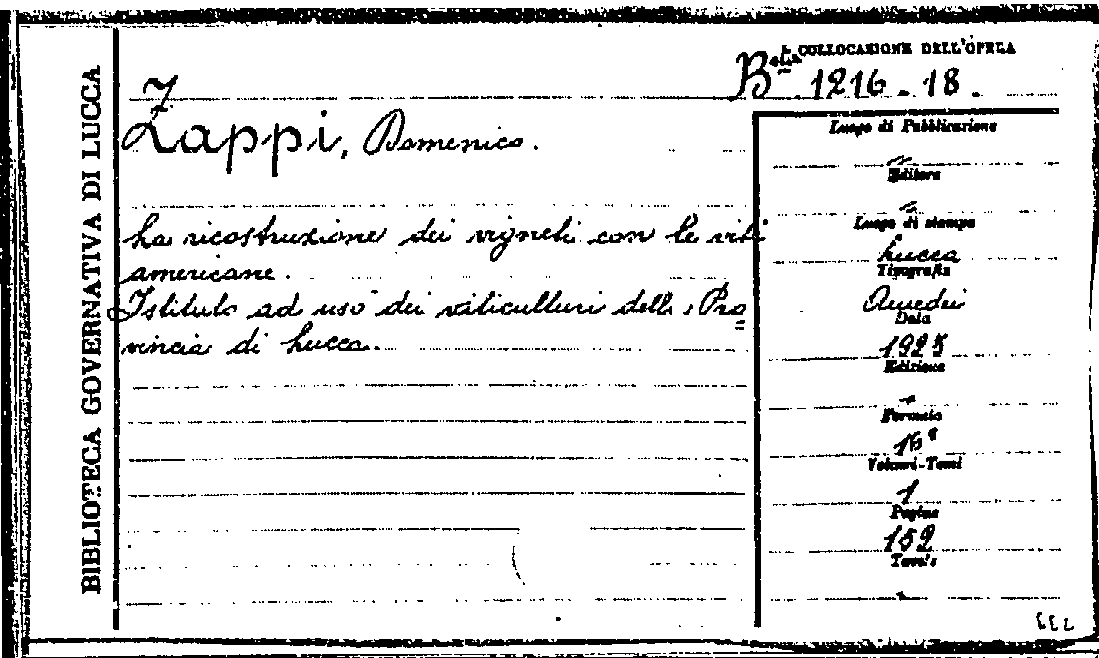 BIBLIOTECA GOVERNATIVA DI LUCCA
COLLOCAZIONE DELL'OPERA
B.ta 1216.18.
Z
Zappi, Domenico.
La ricostruzione dei vigneti con le viti
americane.
Istituto ad uso dei viticulturi della Pro
vincia di Lucca.
Luogo di Pubblicazione
"
Editore
"
Luogo di stampa
Lucca
Tipografia
Amedei
Data
1925
Edizione
Formato
16°
Volumi-Tomi
1
Pagine
152
Tavole